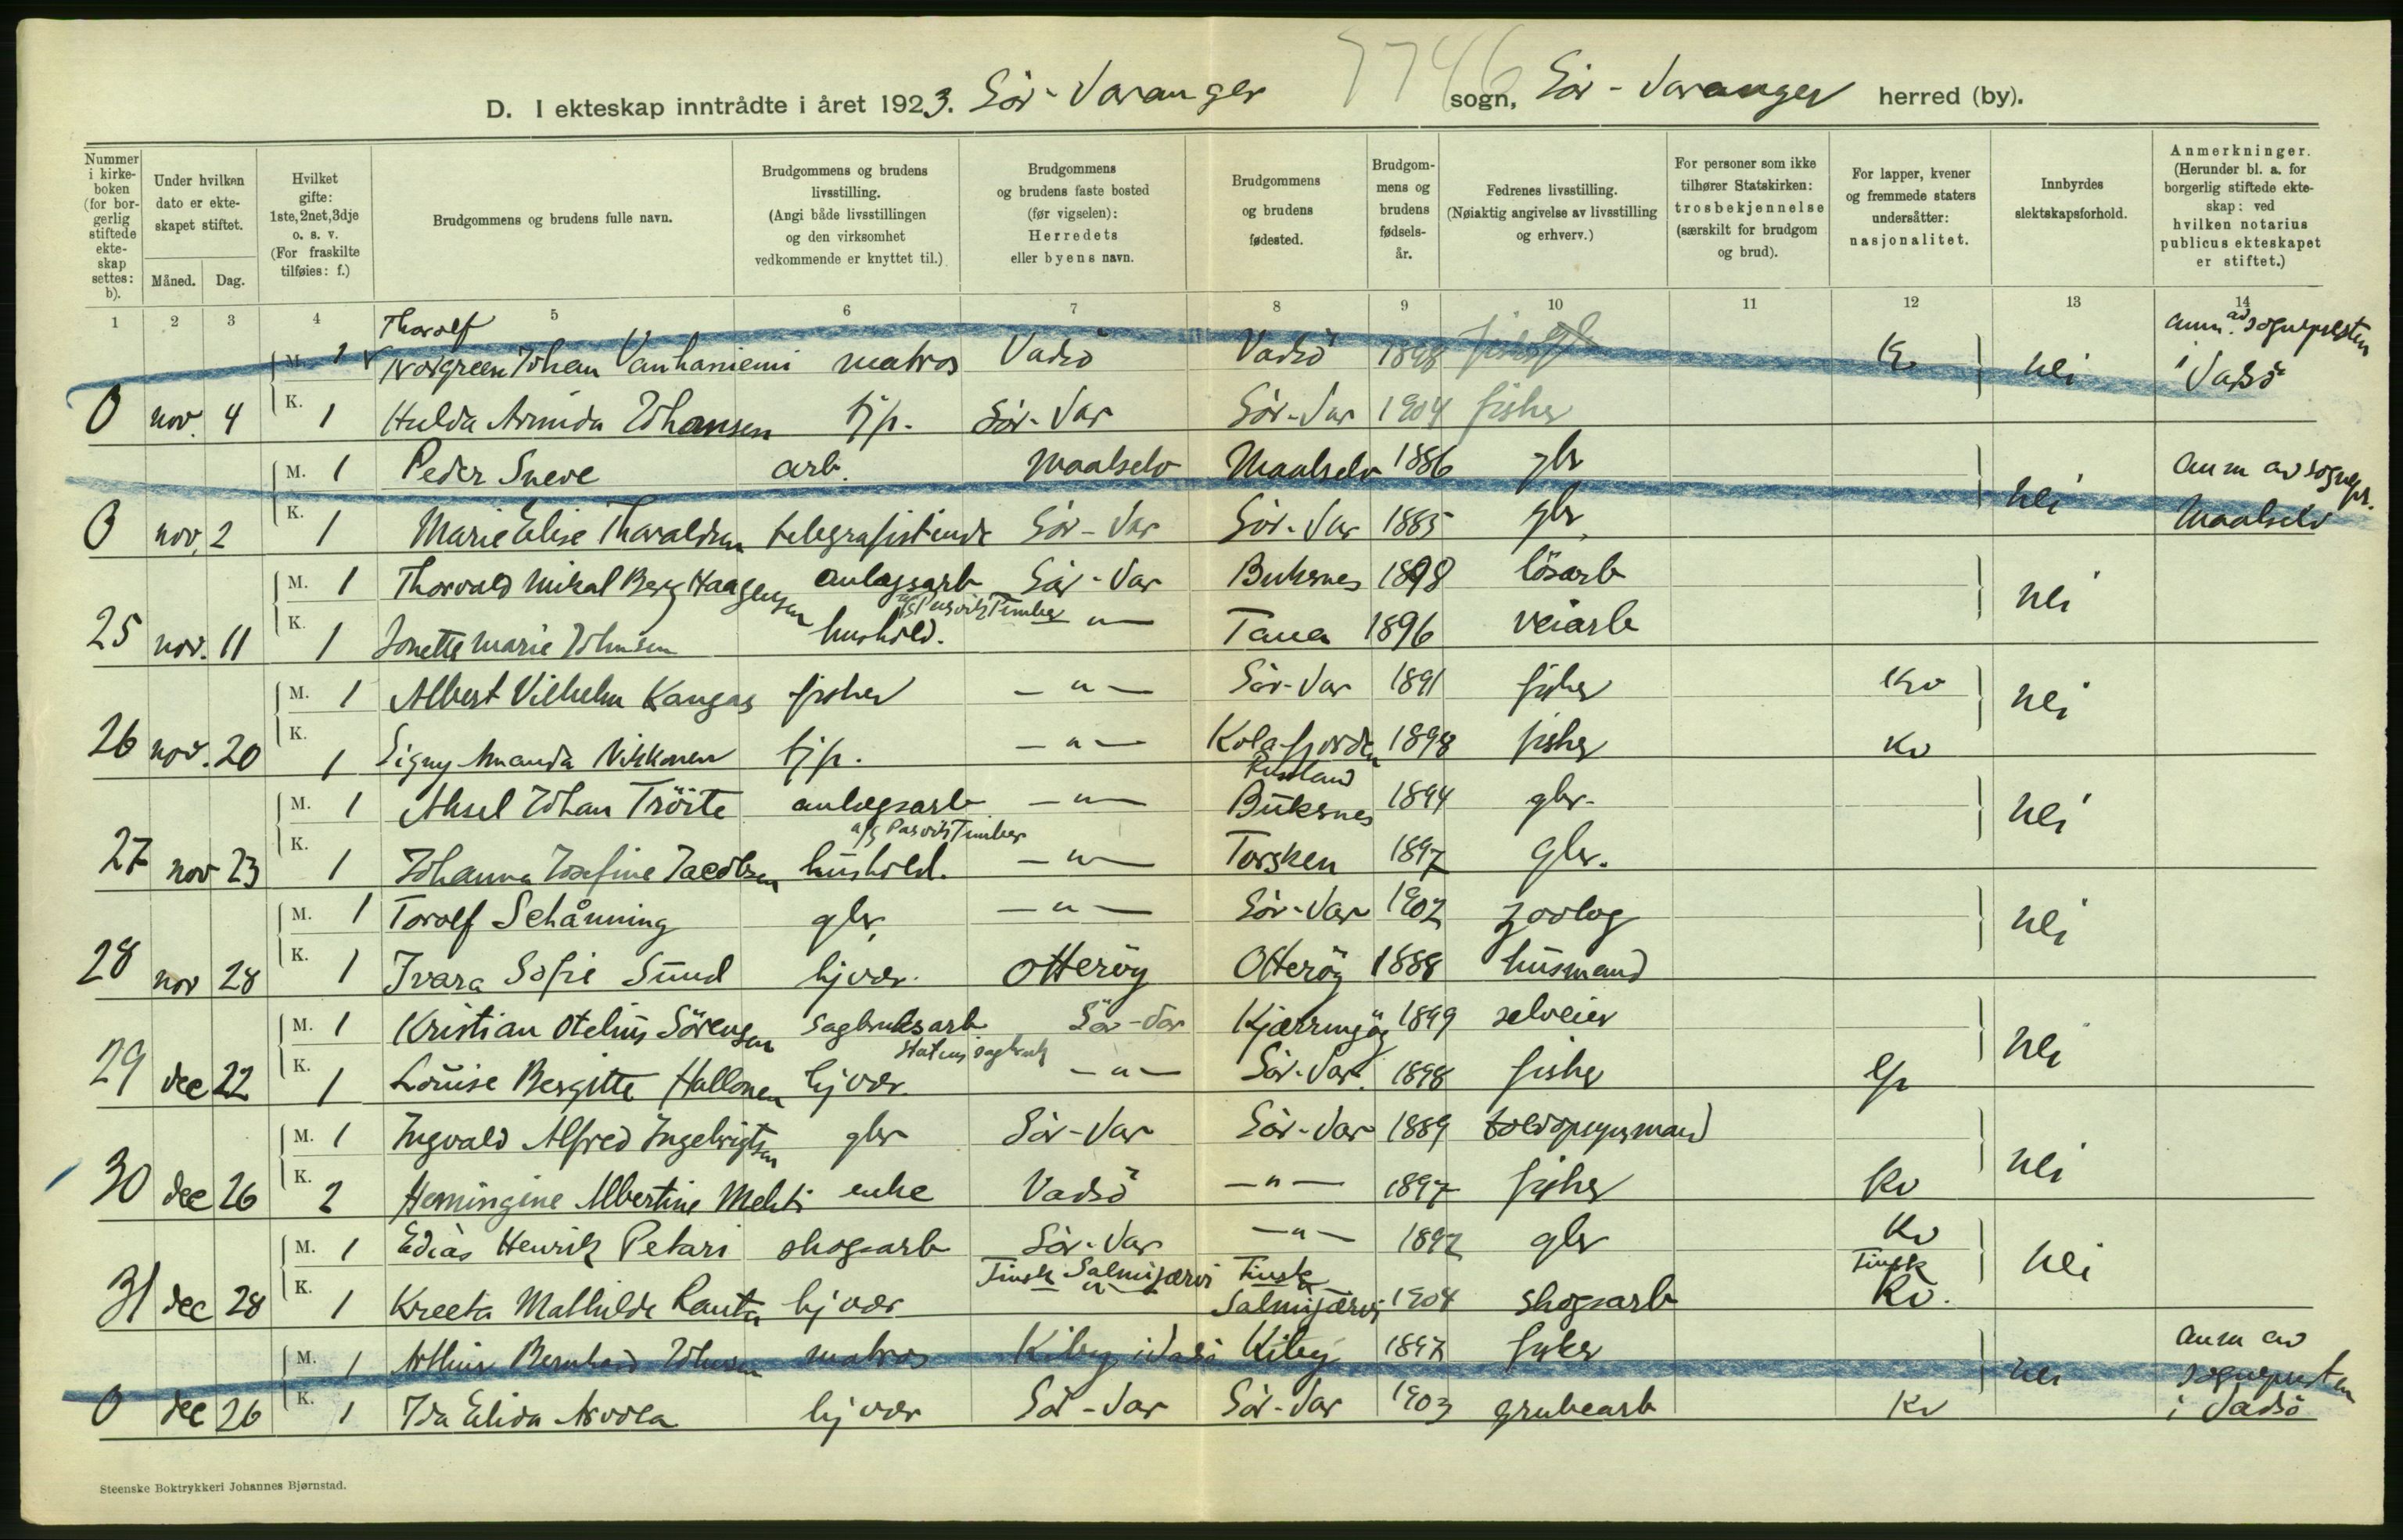 7746
D. I ekteskap inntrådte i året 1923. Sör-Varanger sogn, Sör-Varanger herred (by).
Nummer i kirke-boken (for bor-gerlig stiftede ekte-skap settes: b).
Under hvilken dato er ekte-skapet stiftet.
Måned. Dag.
Hvilket gifte: 1ste, 2net, 3dje o. s. v. (For fraskilte tilføies: f.)
Brudgommens og brudens fulle navn.
Brudgommens og brudens livsstilling. (Angi både livsstillingen og den virksomhet vedkommende er knyttet til.)
Brudgommens og brudens faste bosted (før vigselen): Herredets eller byens navn.
Brudgommens og brudens fødested.
Brudgom-mens og brudens fødsels-år.
Fedrenes livsstilling. (Nøiaktig angivelse av livsstilling og erhverv.)
For personer som ikke tilhører Statskirken: trosbekjennelse (særskilt for brudgom og brud).
For lapper, kvener og fremmede staters undersåtter: nasjonalitet.
Innbyrdes slektskapsforhold.
Anmerkninger. (Herunder bl. a. for borgerlig stiftede ekte-skap: ved hvilken notarius publicus ekteskapet er stiftet.)
1 2 3 4 5 6 7 8 9 10 11 12 13 14
Thorolf
M. 1 Norgreen Johan Vanhaniemi matros Vadsö Vadsö 1898 nei anm. av sognepresten i Vadsö
0 nov. 4 K. 1 Hulda Arminda Johansen tjp. Sör-Var Sör-Var 1904 fisker
M. 1 Peder Sneve arb. Maalselv Maalselv 1886 gbr nei anm av sognepr. Maalselv
0 nov. 2 K. 1 Marie Elise Tharaldsen telegrafistinde Sör-Var Sör-Var 1885 gbr.
M. 1 Thorvald Mikal Berg Haagensen anlagsarb Sör-Var Buksnes 1898 lösarb nei
a/s Pasvik Timber
25 nov. 11 K. 1 Jonette Marie Johnsen hushold. -"- Tana 1896 veiarb
M. 1 Albert Vilhelm Kangas fisker -"- Sör-Var 1891 fisker Kv nei
26 nov. 20 K. 1 Signy Amanda Nikkonen tjp. -"- Kolafjorden Russland 1898 fisker Kv
M. 1 Aksel Johan Tröite anlegsarb -"- Buksnes 1894 gbr. nei
a/s Pasvik Timber
27 nov 23 K. 1 Johanna Josefine Jacobsen hushold. -"- Torsken 1897 gbr.
M. 1 Torolf Schånning gbr. -"- Sör-Var 1902 zoolog nei
28 nov 28 K. 1 Ivara Sofie Sund hj vær. Otteröy Otteröy 1888 husmand
M. 1 Kristian Otelius Sörensen sagbruksarb Sör-Var Kjærringöy 1899 selveier nei
Statens sagbruk
29 dec 22 K. 1 Louise Bergitte Hallonen hj vær. -"- Sör-Var. 1898 fisker lp
M. 1 Ingvald Alfred Ingebrigtsen gbr Sör-Var Sör-Var 1889 toldopsynsmand nei
30 dec 26 K. 2 Hemingine Albertine Mehti enke Vadsö -"- 1897 fisker Kv
M. 1 Edias Henrik Petari skogsarb Sör-Var -"- 1892 gbr Kv nei
31 dec 28 K. 1 Kreeta Mathilde Rauta hj vær Finsk Salmijærvi Finsk Salmijærvi 1904 skogsarb Finsk Kv.
M. 1 Arthur Bernhard Johnsen matros Kiby i Vadsö Kiby 1897 fisker nei anm av sognepresten i Vadsö
0 dec 26 K. 1 Ida Elida Arvola hj vær Sör-Var Sör-Var 1903 grubearb Kv
Steenske Boktrykkeri Johannes Bjørnstad.